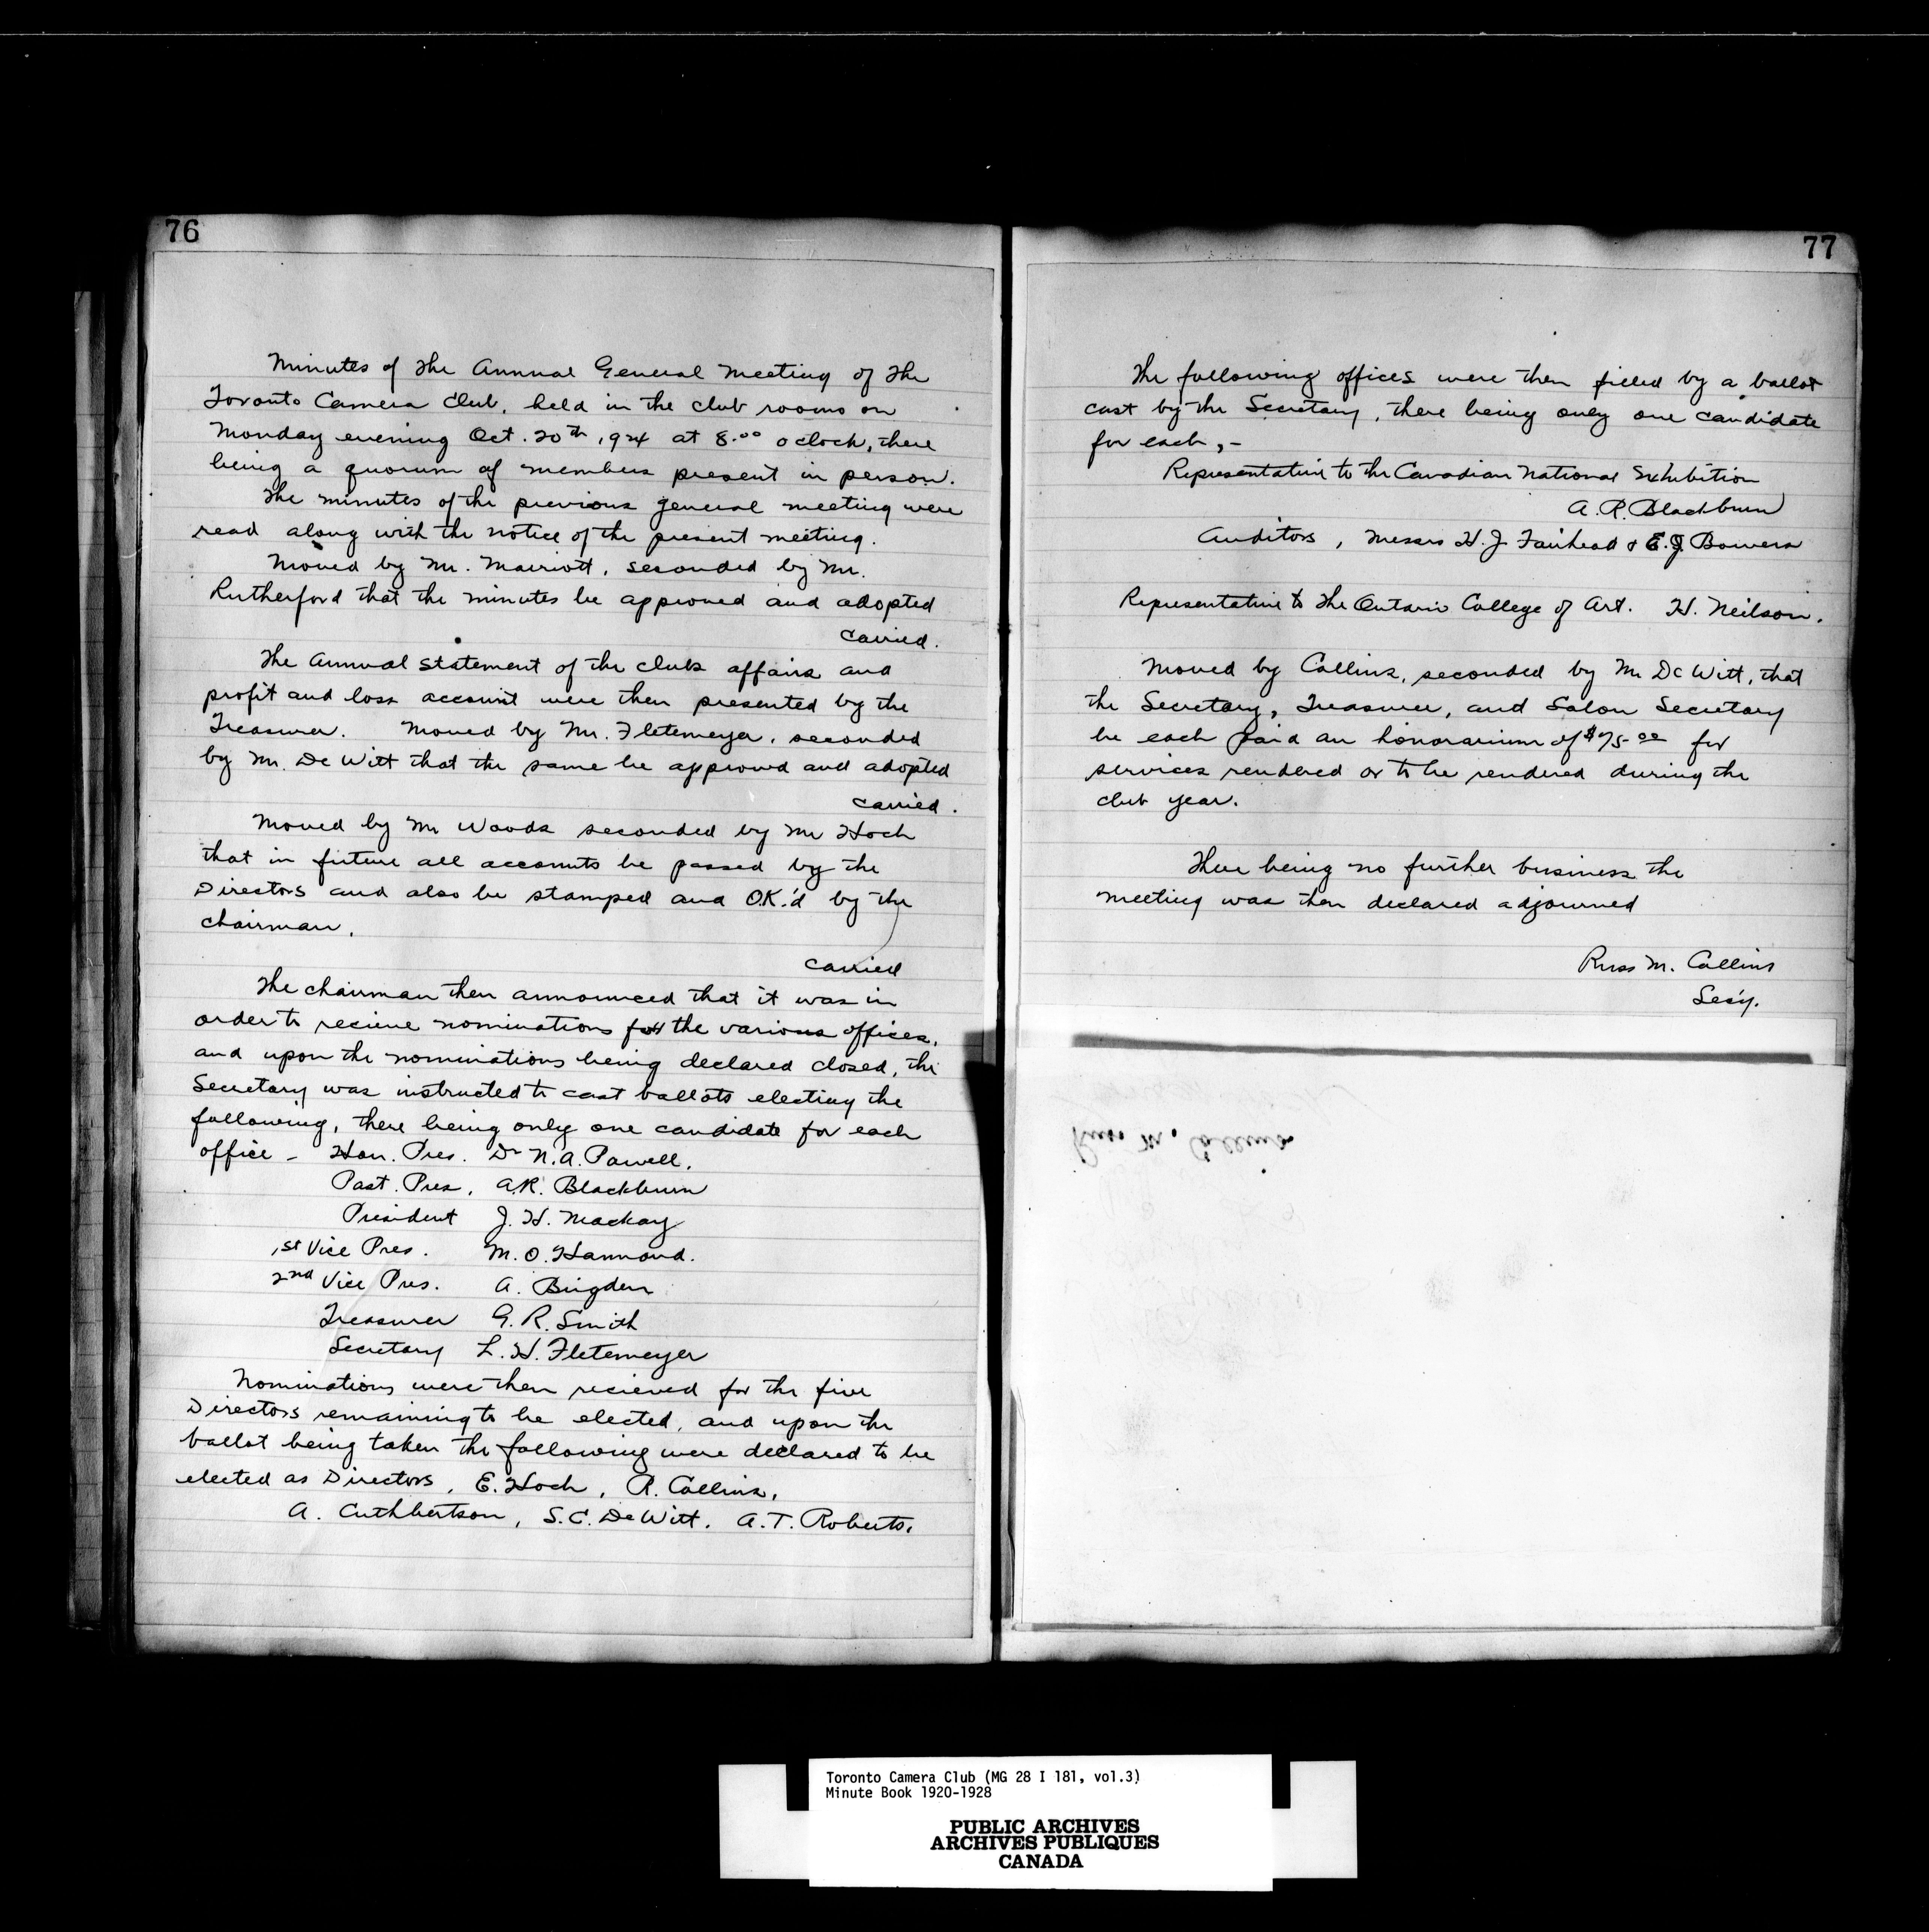 76
Minutes of the Annual General Meeting of the
Toronto Camera Club, held in the club rooms on
Monday evening Oct. 20th, 1924 at 8.00 oclock, there
being a quorum of members present in person.
The minutes of the previous general meeting were
read along with the notice of the present meeting.
Moved by Mr. Marriott, seconded by Mr.
Rutherford that the minutes be approved and adopted
Carried.
The Annual statement of the clubs affairs and
profit and loss account were then presented by the
Treasurer. Moved by Mr. Fletemeyer, seconded
by Mr. De Witt that the same be approved and adopted
Carried.
Moved by Mr Woods seconded by Mr Hoch
that in future all accounts be passed by the
Directors and also be stamped and O.K.'d by the
Chairman.
Carried
The chairman then announced that it was in
order to recieve nominations for the various offices,
and upon the nominations being declared closed, the
Secretary was instructed to cast ballots electing the
following, there being only one candidate for each
office - Hon. Pres. Dr N. A. Powell.
Past. Pres. A.R. Blackburn
President J. H. Mackay
1st Vice Pres. M. O. Hammond.
2nd Vice Pres. A. Brigden
Treasurer G. R. Smith
Secretary L. H. Fletemeyer
Nominations were then recieved for the five
Directors remaining to be elected, and upon the
ballot being taken the following were declared to be
elected as Directors, E. Hoch, R. Collins,
A. Cuthbertson, S. C. De Witt. A. T. Roberts.
77
The following offices were then filled by a ballot
cast by the Secretary, there being only one candidate
for each,-
Representative to the Canadian National Exhibition
A. R. Blackburn
Auditors, Messrs H. J. Fairhead & E. J. Bowers
Representative to the Ontario College of Art. H. Neilson.
Moved by Collins, seconded by Mr De Witt, that
the Secretary, Treasurer, and Salon Secretary
be each paid an honorarium of $75.00 for
services rendered or to be rendered during the
club year.
There being no further business the
meeting was then declared adjourned
Russ M. Collins
Sec'y.
Toronto Camera Club (MG 28 I 181, vol.3)
Minute Book 1920-1928
PUBLIC ARCHIVES
ARCHIVES PUBLIQUES
CANADA